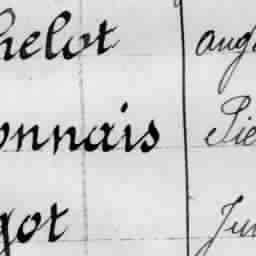 helot aug
onnais Pie
got Ju